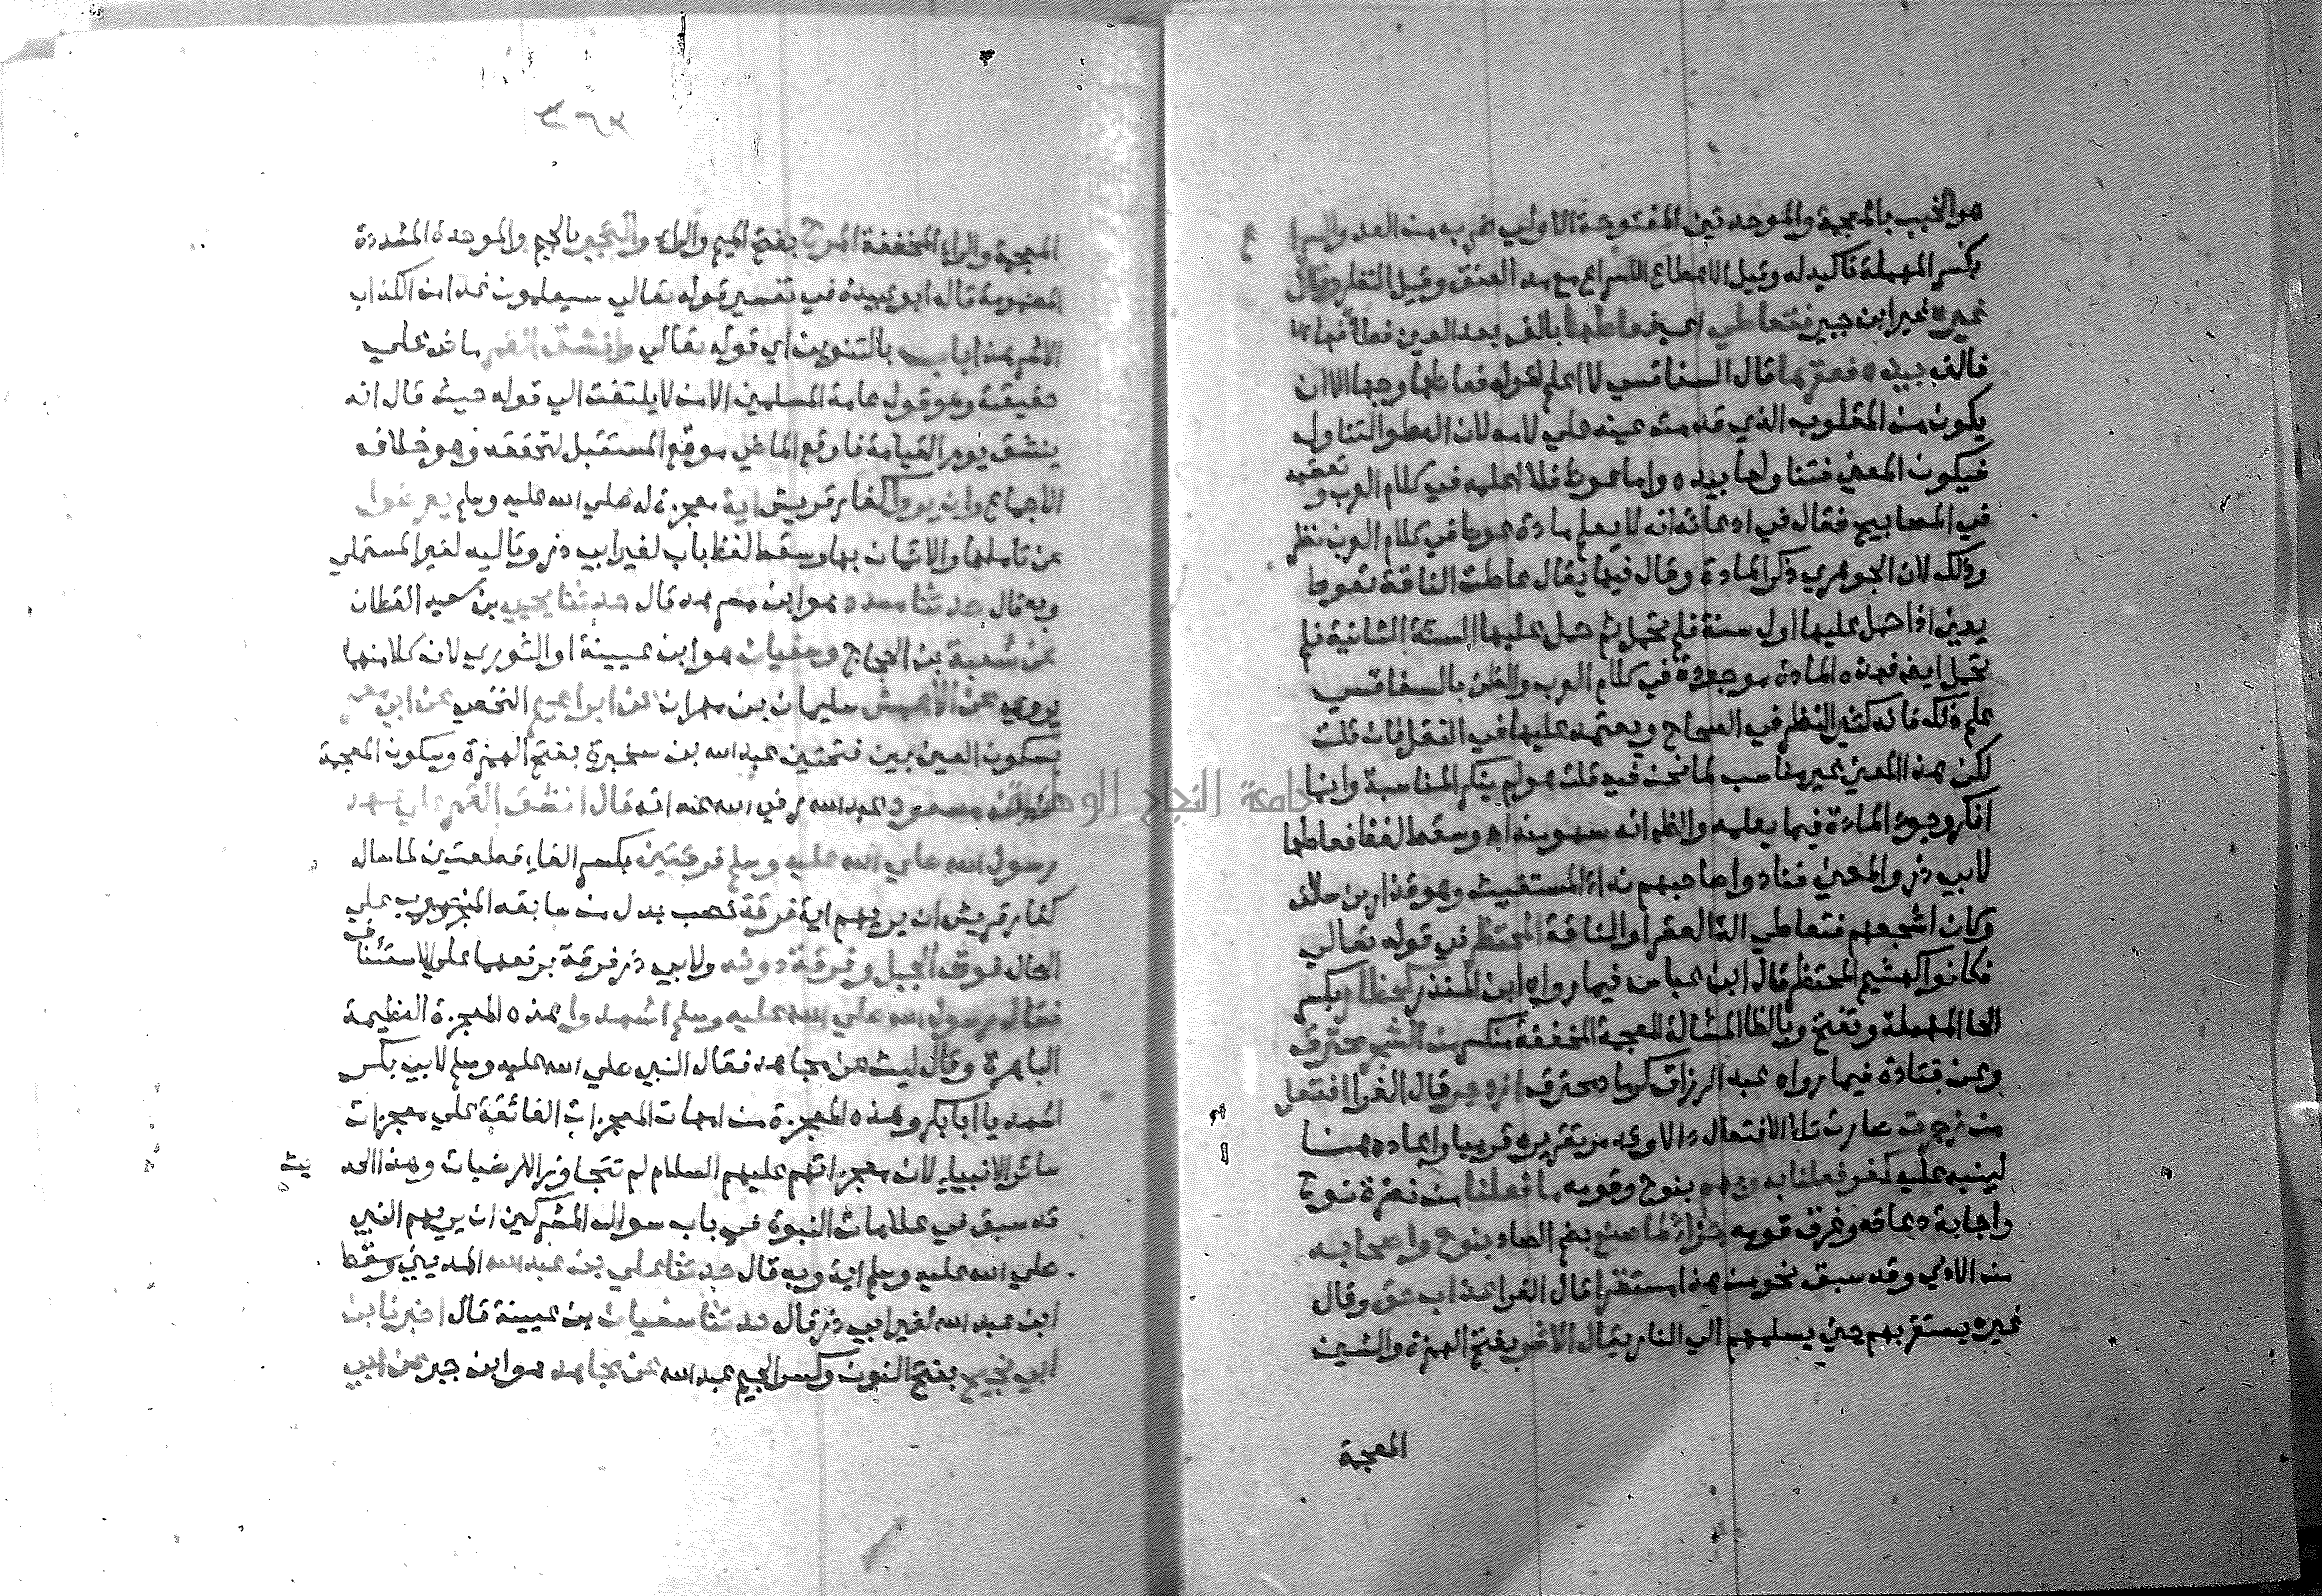 هو الخبب بالمعجمة والموحدتين المفتوحة الاولي ضرب من العدو والسرا ع
بكسر المهملة تاكيد له وقيل الاهطاع الاسراع مع مد العنق وقيل النظر وقال
غيره غير ابن جبير فتعاطي اي فعاطها بالف بعد العين فطاء فهاء
فالف بيده فعقرها قال السفاقسي لا اعلم لقوله فعاطها وجها الا ان
يكون من المقلوب الذي قدمت عينه علي لامه لان العطو التناول
فيكون المعني فتناولها بيده واما عوط فلا اعلمه في كلام العرب وتعقبه
في المصابيح فقال في ادعائه انه لا يعلم مادة عوط في كلام العرب نظر
وذلك لان الجوهري ذكر المادة وقال فيها يقال عاطت الناقة تعوط
يعني اذا حمل عليها اول سنة فلم تحمل ثم حمل عليها السنة الثانية فلم
تحمل ايضا فهذه المادة موجودة في كلام العرب والظن بالسفاقسي
علم ذلك فانه كثير النظر في الصحاح ويعتمد عليها في النقل فان قلت
لكن هذا المعني غير مناسب لما نحن فيه قلت هو لم ينكر المناسبة وانما
انكر وجود المادة فيما يعلمه والظاهر انه سهو منه اه وسقط لفظ فعاطها
لابي ذر والمعني فنادوا صاحبهم نداء المستغيث وهو قدار بن سالف
وكان اشجعهم فتعاطي الة العقر او الناقة المحتظر في قوله تعالي
فكانوا كهشيم المحتظر قال ابن عباس فيما رواه ابن المنذر كحظار بكسر
الحا المهملة وتفتح وبالظا المشالة المعجمة المخففة منكسر من الشجر محترق
وعن قتادة فيما رواه عبد الرزاق كرماد محترق ازدجر قال الفرا افتعل
من زجرت صارت تاء الافتعال دالا وقد مر تقريره قريبا واعاده هنا
لينبه عليه كفر فعلنا به وبهم بنوح وقومه ما فعلنا من نصرة نوح
واجابة دعائه وغرق قومه جزاء لما صنع بضم الصاد بنوح واصحابه
من الاذي وقد سبق نحو من هذا مستقر قال الفرا عذاب حق وقال
غيره يستقر بهم حتي يسلمهم الي النار يقال الاشر بفتح الهمزة والشين
المعجمة
المعجمة والراء المخففة المرح بفتح الميم والراء والتجبر بالجيم والموحدة المشددة
المضمومة قاله ابو عبيدة في تفسير قوله تعالي سيعلمون غدا من الكذاب
الاشر هذا باب بالتنوين اي قوله تعالي وانشق القمر ماض علي
حقيقته وهو قول عامة المسلمين الا من لا يلتفت الي قوله حيث قال انه
ينشق يوم القيامة فاوقع الماضي موقع المستقبل لتحققه وهو خلاف
الاجماع وان يروا كفار قريش اية معجزة له صلي الله عليه وسلم يعرضوا
عن تاملها والايمان بها وسقط لفظ باب لغير ابي ذر وتاليه لغير المستملي
وبه قال حدثنا مسدد هو ابن مسرهد قال حدثنا يحيي بن سعيد القطان
عن شعبة بن الحجاج وسفيان هو ابن عيينة او الثوري لان كلا منهما
يروي عن الاعمش سليمان بن مهران عن ابراهيم النخعي عن ابي معمر
بسكون العين بين فتحتين عبد الله بن سخبرة بفتح المهملة وسكون المعجمة
عن ابن مسعود عبد الله رضي الله عنه انه قال انشق القمر علي عهد
رسول الله صلي الله عليه وسلم فرقتين بكسر الفاء قطعتين لما سال
كفار قريش ان يريهم اية فرقة نصب بدل من سابقه المنصوب علي
الحال فوق الجبل وفرقة دونه ولابي ذر فرقة برفعهما علي الاستئناف
فقال رسول الله صلي الله عليه وسلم اشهدوا هذه المعجزة العظيمة
الباهرة وقال ليث عن مجاهد فقال النبي صلي الله عليه وسلم لابي بكر
اشهد يا ابا بكر وهذه المعجزة من امهات المعجزات الفائقة علي معجزات
سائر الانبياء لان معجزاتهم عليهم السلام لم تتجاوز الارضيات وهذا الحد يث
قد سبق في علامات النبوة في باب سوال المشركين ان يريهم النبي
صلي الله عليه وسلم اية وبه قال حدثنا علي بن عبد الله المديني وسقط
ابن عبد الله لغير ابي ذر قال حدثنا سفيان بن عيينة قال اخبرنا ابن
ابي نجيح بفتح النون وكسر الجيم عبد الله عن مجاهد هو ابن جبر عن ابي
جامعة النجاح الوطنية